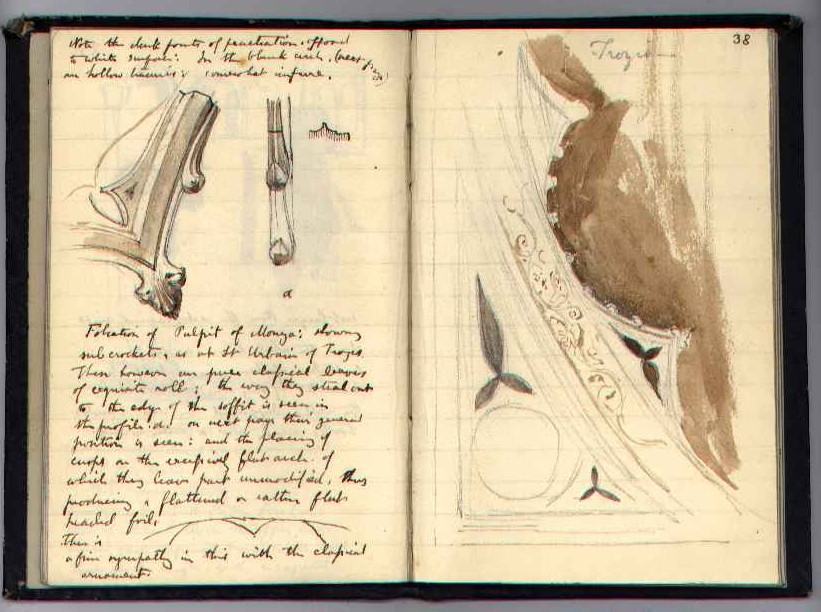 Note the dark points of penetration opposed
to white surface: In the blank circle, (next p. 38)
an hollow tracery: somewhat impure.
a
Foliation of Pulpit of Monza: showing
subcrockets, as at St Urbain of Troyes.
These however are pure classical leaves
of exquisite roll; the way they steal out
to the edge of the soffit is seen in
the profile .a. on next page their general
position is seen: and the placing of
cusps on the excessively flat arch. of
which they leave part unmodified, thus
producing a flattened or rather flat
headed foil.
There is
a fine sympathy in this with the classical
ornament.
38
Troyes